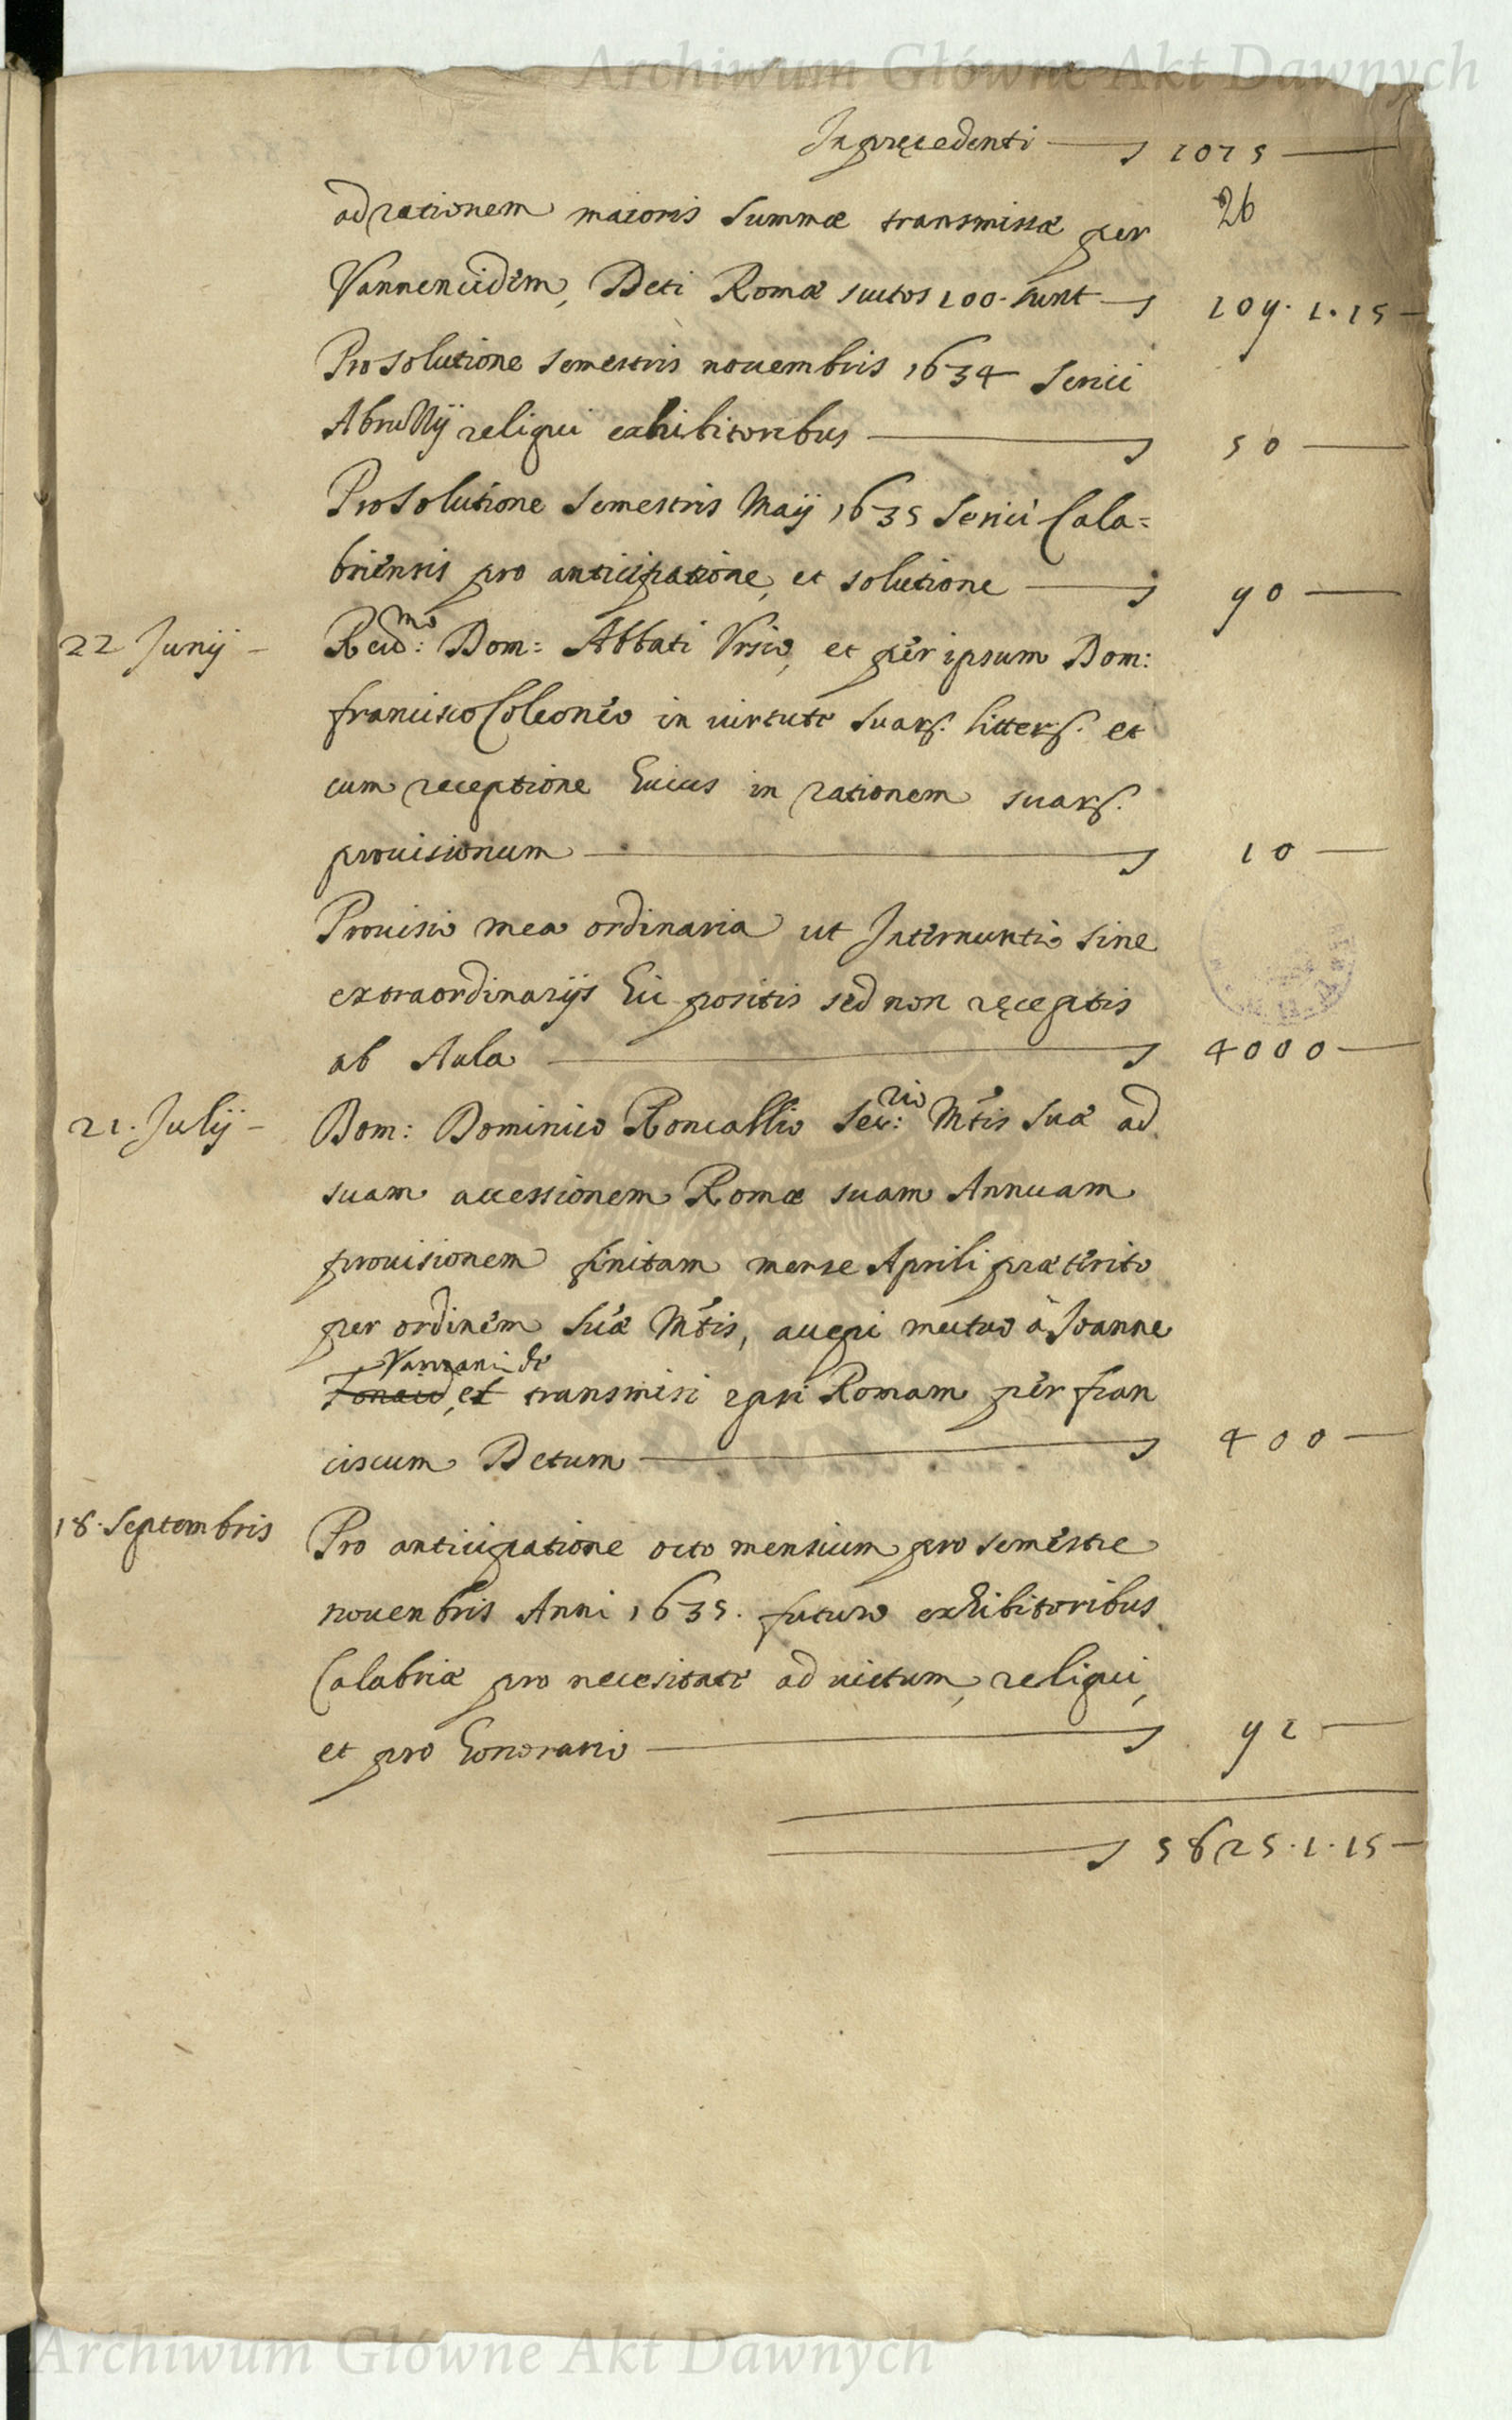 Archiwum Główne Akt Dawnych
In precedenti 1075
26
ad rationem maioris summæ transmissæ per
Deti Romæ scutos 100. sunt 109. 1. 15
Pro solutione semestris nouembris 1634 
religui exhibitoribus 50
Pro solutione semestris Maij 1635 Cala=
briensis pro anticipatione, et solutione 90
22 Junij - Reud:mo Dom: Abbati Vrsio, et per ipsum Dom:
francisco Coleoneo in uirtute suar. litter. et
cum receptione huius in rationem suar.
prouisionum 10
Prouisio mea ordinaria ut Internuntio sine
extraordinarijs hic positis sed non receptis
ab Aula 4000
21. Julij - Dom: Dominico Roncallio Sec:rio Mtis Suæ ad
suam accessionem Romæ suam Annuam
prouisionem finitam mense Aprili præterito
per ordinem Suæ Mtis, accepi mutuo à Joanne
et transmisi ipsi Romam per fran
ciscum Detum 400
18. Septembris Pro anticipatione octo mensium pro semestre
nouenbris Anni 1635. futuro exhibitoribus
Calabriæ pro necesitate ad uictum, religui,
et pro honorario 91
5825. 1. 15
Archiwum Główne Akt Dawnych